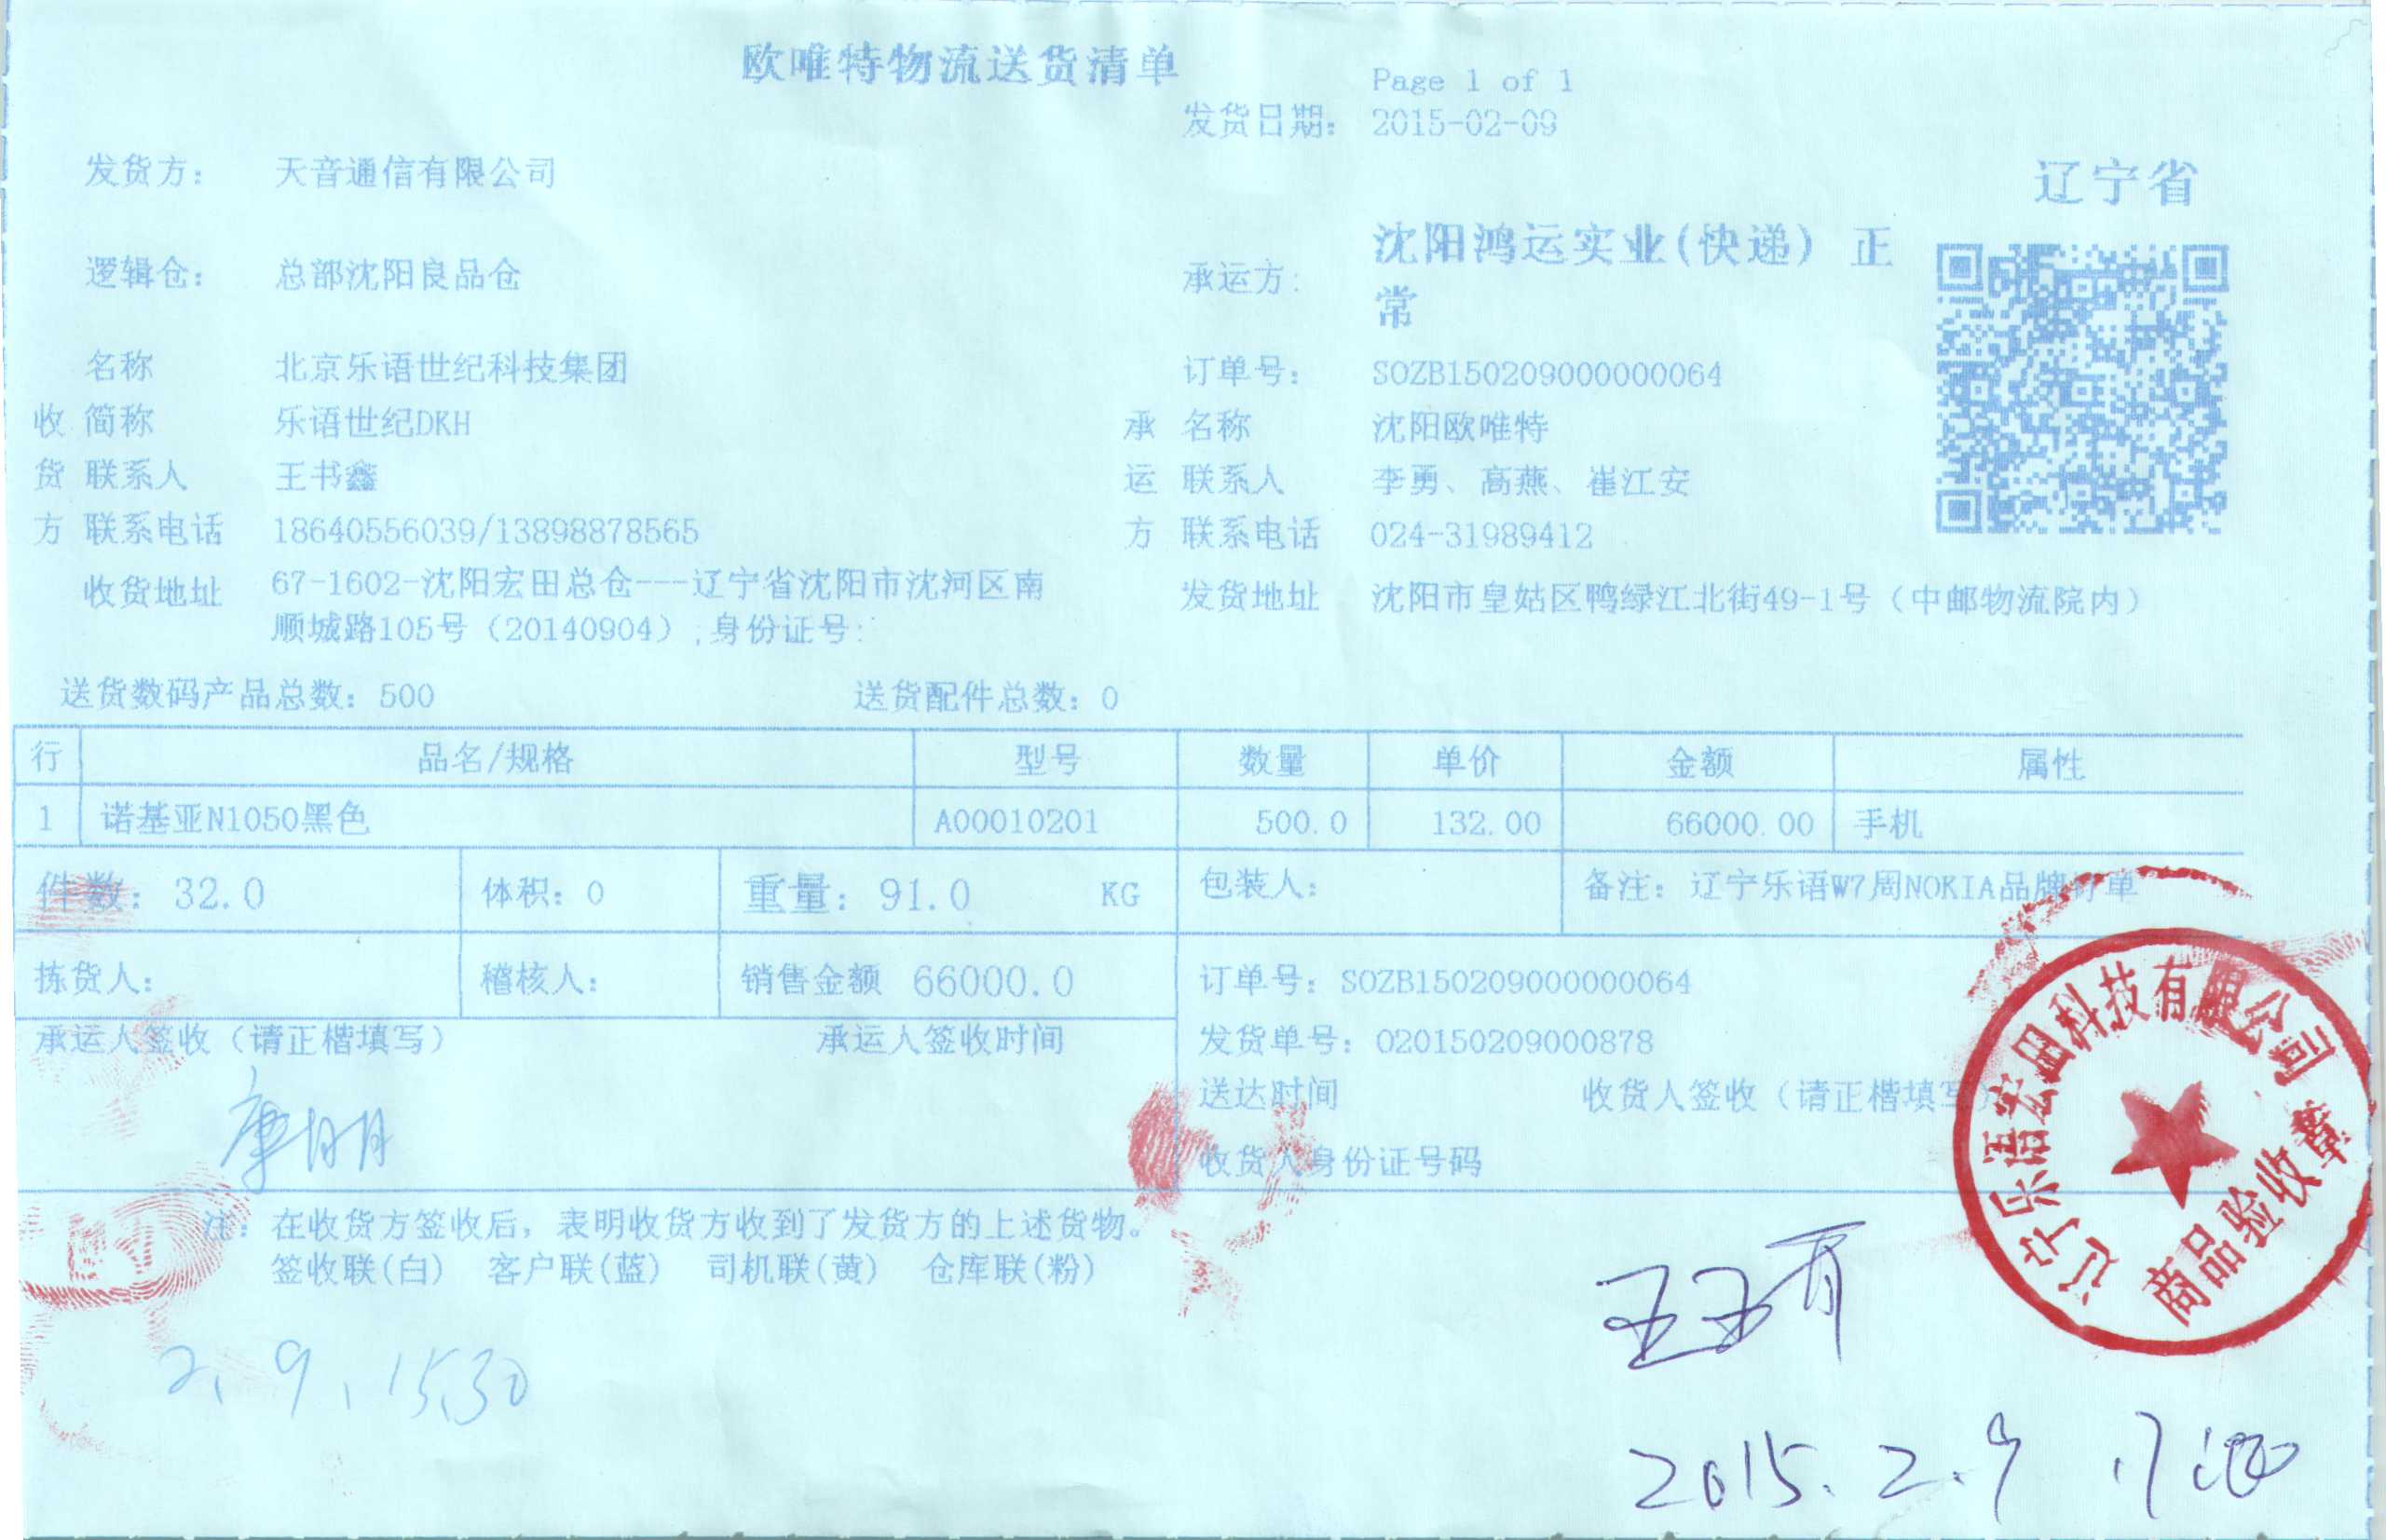 欧唯特物流送货清单
Page 1 of 1
发货日期: 2015-02-09
发货方: 天音通信有限公司
辽宁省
逻辑仓: 总部沈阳良品仓
承运方: 沈阳鸿运实业(快递) 正
常
名称 北京乐语世纪科技集团
订单号: SOZB150209000000064
收 简称 乐语世纪DKH
承 名称 沈阳欧唯特
货 联系人 王书鑫
运 联系人 李勇、高燕、崔江安
方 联系电话 18640556039/13898878565
方 联系电话 024-31989412
收货地址 67-1602-沈阳宏田总仓---辽宁省沈阳市沈河区南
顺城路105号（20140904）;身份证号:
发货地址 沈阳市皇姑区鸭绿江北街49-1号（中邮物流院内）
送货数码产品总数: 500 送货配件总数: 0
行 品名/规格 型号 数量 单价 金额 属性
1 诺基亚N1050黑色 A00010201 500.0 132.00 66000.00 手机
件数: 32.0 体积: 0 重量: 91.0 KG 包装人: 备注: 辽宁乐语W7周NOKIA品牌订单
拣货人: 稽核人: 销售金额 66000.0 订单号: SOZB150209000000064
承运人签收（请正楷填写） 承运人签收时间
发货单号: 020150209000878
送达时间 收货人签收（请正楷填写）
收货人身份证号码
注: 在收货方签收后, 表明收货方收到了发货方的上述货物。
签收联(白) 客户联(蓝) 司机联(黄) 仓库联(粉)
辽宁乐语宏田科技有限公司
商品验收章
2.9.15.30
2015.2.9